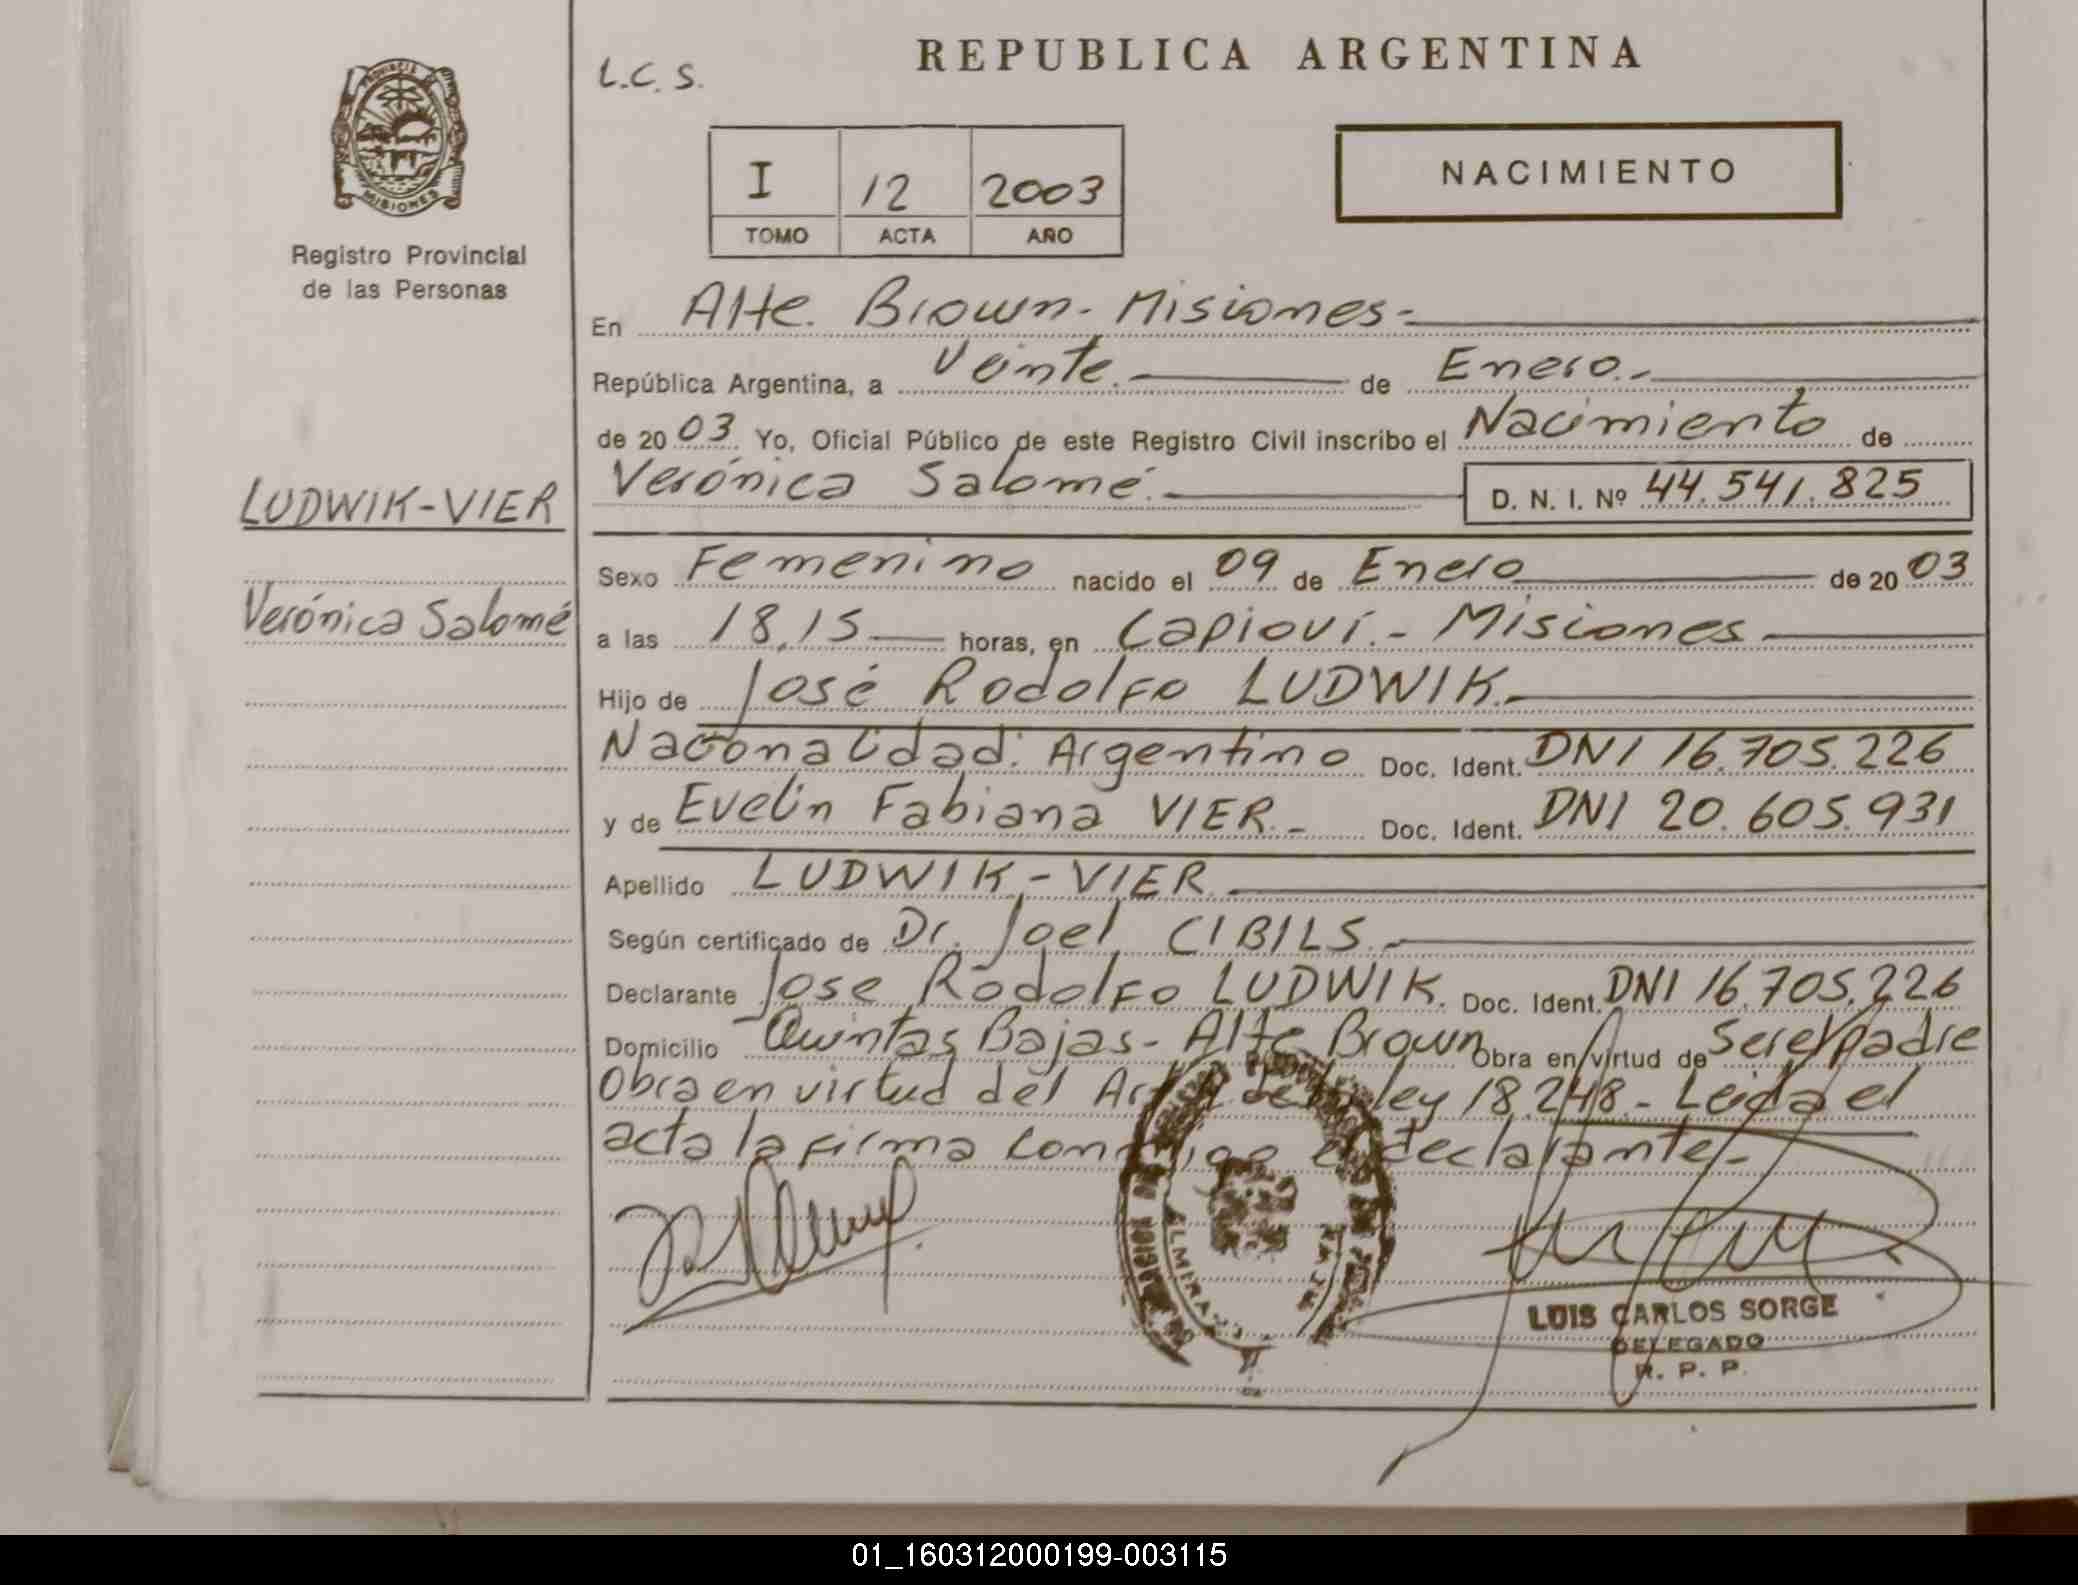 REPUBLICA ARGENTINA
L.C.S.
NACIMIENTO
I 12 2003
TOMO ACTA AÑO
PROVINCIA
MISIONES
Registro Provincial
de las Personas
LUDWIK-VIER
Verónica Salomé
En Alte. Brown - Misiones -
República Argentina, a Veinte. de Enero.-
de 2003. Yo, Oficial Público de este Registro Civil inscribo el Nacimiento de
Verónica Salomé.- D. N. I. Nº 44.541.825
Sexo Femenino nacido el 09 de Enero de 2003
a las 18,15 horas, en Capioví.- Misiones
Hijo de José Rodolfo LUDWIK.-
Nacionalidad: Argentino Doc. Ident. DNI 16.705.226
y de Evelin Fabiana VIER.- Doc. Ident. DNI 20.605.931
Apellido LUDWIK-VIER.
Según certificado de Dr. Joel CIBILS.-
Declarante Jose Rodolfo LUDWIK. Doc. Ident. DNI 16.705.226
Domicilio Quintas Bajas - Alte Brown Obra en virtud de Ser el padre
Obra en virtud del ley 18.248.- Leida el
acta la firma conmigo el declarante.-
LUIS CARLOS SORGE
DELEGADO
R. P. P.
01_160312000199-003115